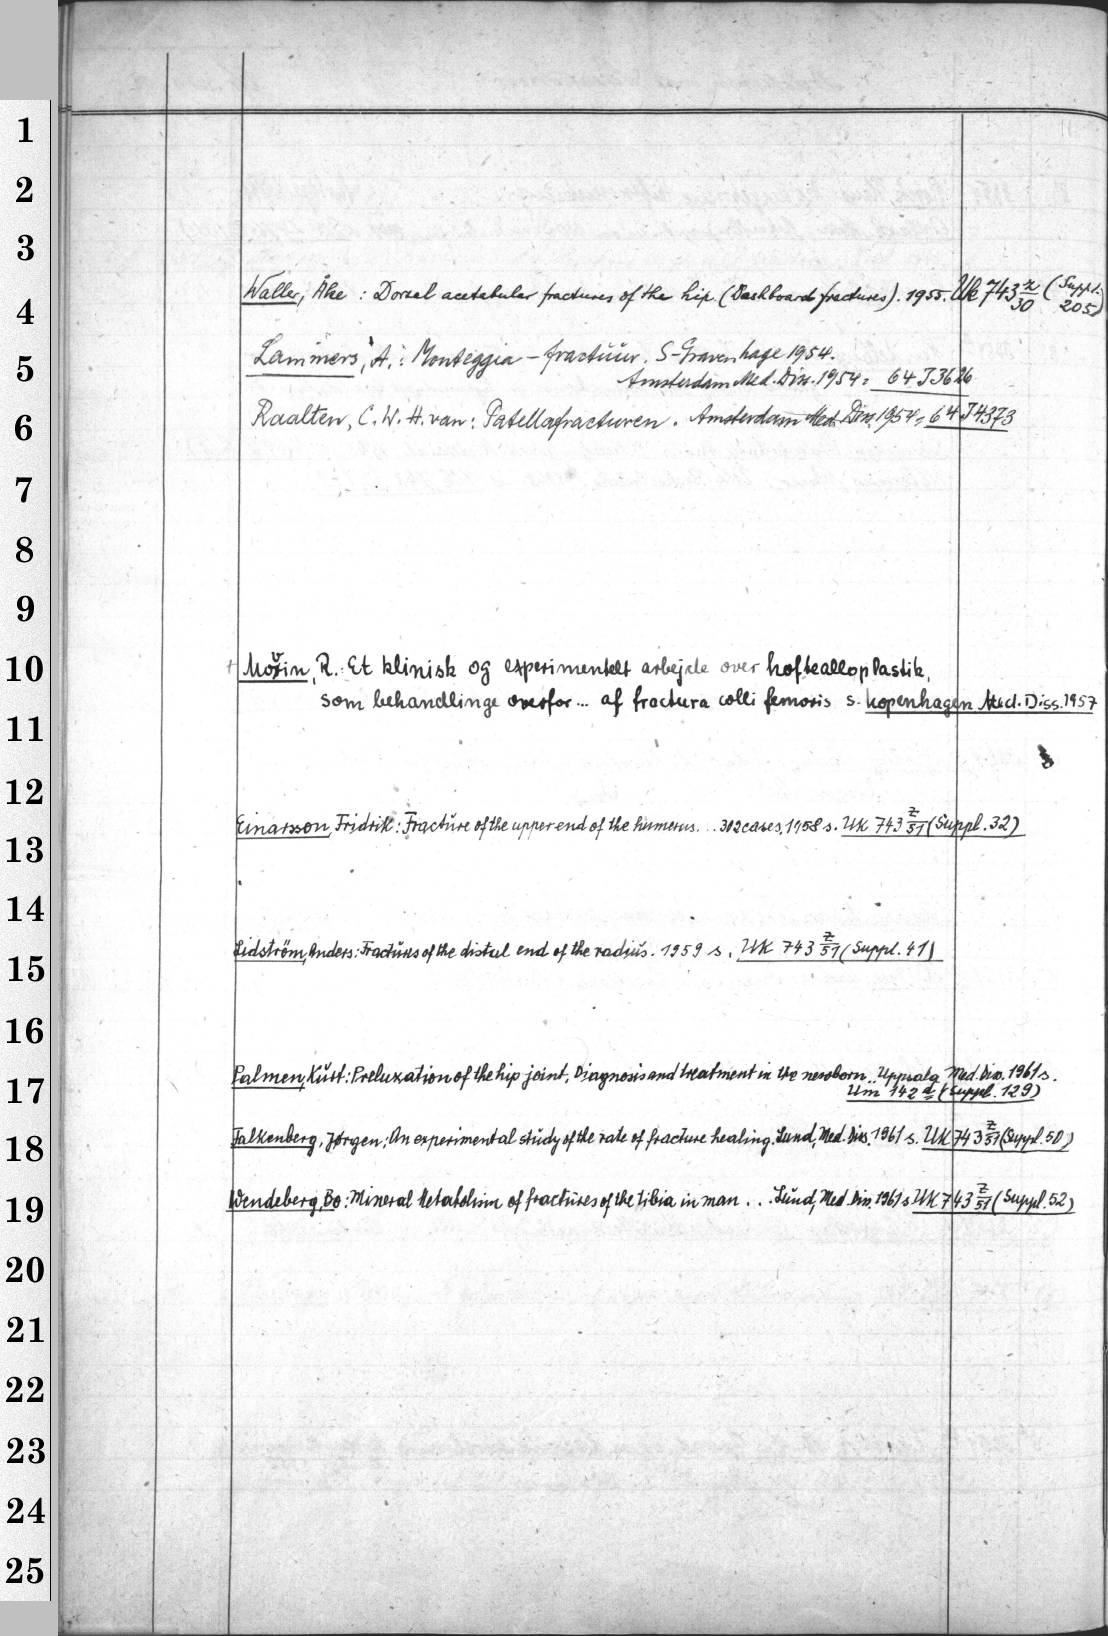 1
2
3
4
5
6
7
8
9
10
11
12
13
14
15
16
17
18
19
20
21
22
23
24
25
Waller, Åke : Dorsal acetabular fractures of the hip. (Dashboard fractures). 1955. Uk 743 z/30 (Suppl. 205)
Lammers, A.: Monteggia - fractuur. S-Gravenhage 1954.
Amsterdam Med. Diss. 1954 = 64 J 3626
Raalten, C. W. H. van: Patellafracturen. Amsterdam Med. Diss. 1954 = 64 J 4373
R.: Et klinisk og experimentelt arbejde over hoftealloplastik,
som behandlinge overfor... af fractura colli femoris s. kopenhagen Med. Diss. 1957
Einarsson, Fridrik: Fracture of the upper end of the humerus... 302 cases, 1958 s. Uk 743 Z/51 (Suppl. 32)
Lidström, Anders: Fractures of the distal end of the radius. 1959 s. Uk 743 Z/51 (Suppl. 41)
Palmen, Kurt: Preluxation of the hip joint, Diagnosis and treatment in the newborn.. Uppsala Med. Diss. 1961 s.
Um 142 d (Suppl. 129)
Falkenberg, Jørgen: An experimental study of the rate of fracture healing. Lund, Med. Diss. 1961 s. Uk 743 Z/51 (Suppl. 50)
Wendeberg, Bo: Mineral Metabolism of fractures of the tibia in man... Lund, Med. Diss. 1961 s Uk 743 Z/51 (Suppl. 52)